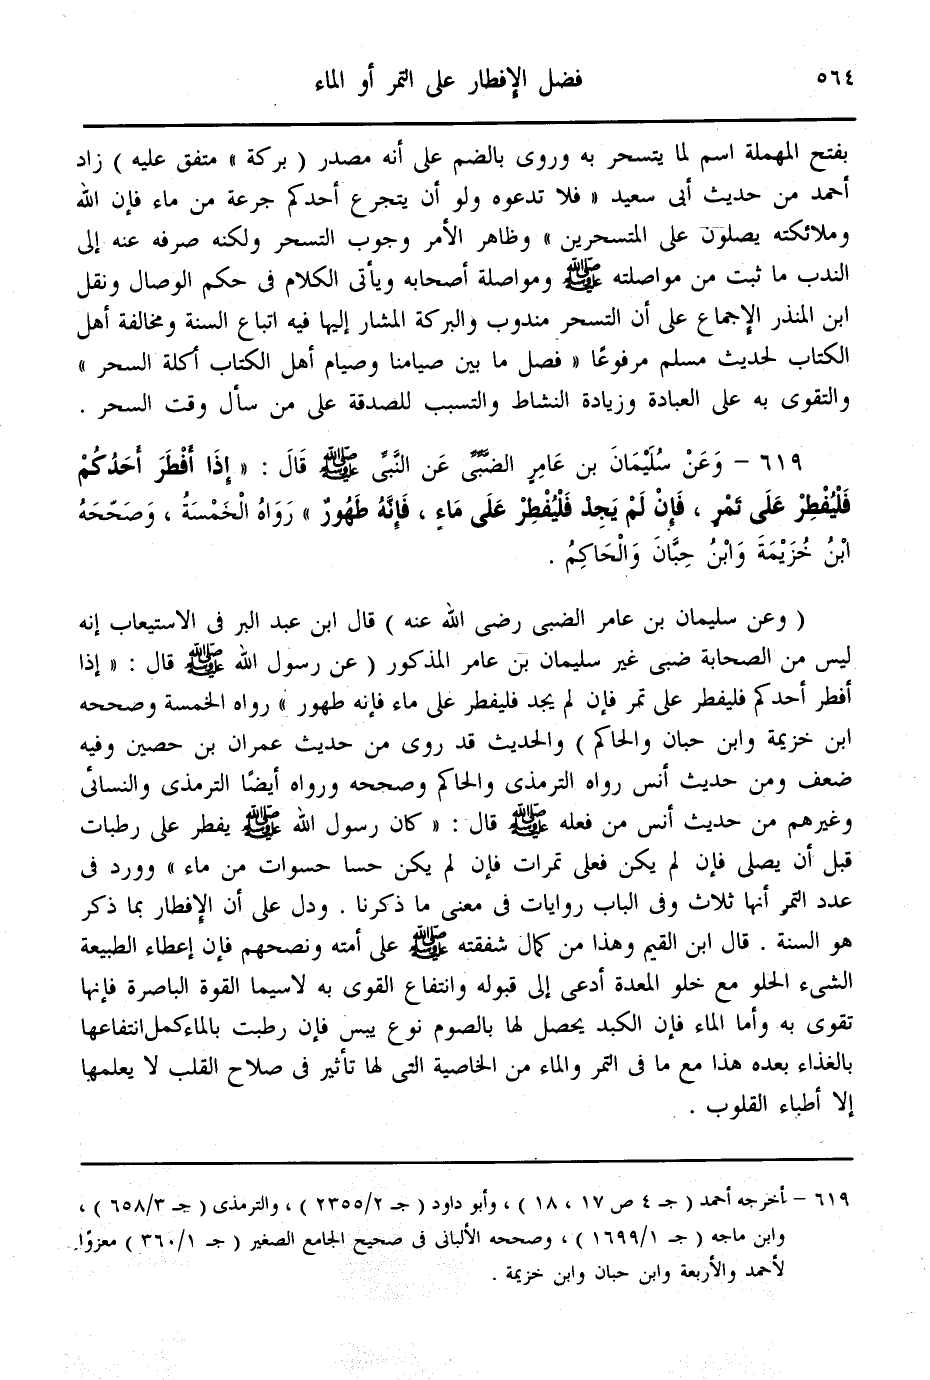 ٥٦٤
فضل الإفطار على التمر أو الماء
بفتح المهملة اسم لما يتسحر به وروى بالضم على أنه مصدر ( بركة » متفق عليه ) زاد
أحمد من حديث أبى سعيد « فلا تدعوه ولو أن يتجرع أحدكم جرعة من ماء فإن الله
وملائكته يصلون على المتسحرين » وظاهر الأمر وجوب التسحر ولكنه صرفه عنه إلى
الندب ما ثبت من مواصلته ﷺ ومواصلة أصحابه ويأتى الكلام فى حكم الوصال ونقل
ابن المنذر الإجماع على أن التسحر مندوب والبركة المشار إليها فيه اتباع السنة ومخالفة أهل
الكتاب لحديث مسلم مرفوعًا « فصل ما بين صيامنا وصيام أهل الكتاب أكلة السحر »
والتقوى به على العبادة وزيادة النشاط والتسبب للصدقة على من سأل وقت السحر .
٦١٩ – وَعَنْ سُلَيْمَانَ بن عَامِرٍ الضَّبِّىِّ عَن النَّبِىِّ ﷺ قَالَ : « إِذَا أَفْطَرَ أَحَدُكُمْ
فَلْيُفْطِرْ عَلَى تَمْرٍ ، فَإِنْ لَمْ يَجِدْ فَلْيُفْطِرْ عَلَى مَاءٍ ، فَإِنَّهُ طَهُورٌ » رَوَاهُ الْخَمْسَةُ ، وَصَحَّحَهُ
ابْنُ خُزَيْمَةَ وَابْنُ حِبَّانَ وَالْحَاكِمُ .
( وعن سليمان بن عامر الضبى رضى الله عنه ) قال ابن عبد البر فى الاستيعاب إنه
ليس من الصحابة ضبى غير سليمان بن عامر المذكور ( عن رسول الله ﷺ قال : « إذا
أفطر أحدكم فليفطر على تمر فإن لم يجد فليفطر على ماء فإنه طهور » رواه الخمسة وصححه
ابن خزيمة وابن حبان والحاكم ) والحديث قد روى من حديث عمران بن حصين وفيه
ضعف ومن حديث أنس رواه الترمذى والحاكم وصححه ورواه أيضًا الترمذى والنسائى
وغيرهم من حديث أنس من فعله ﷺ قال : « كان رسول الله ﷺ يفطر على رطبات
قبل أن يصلى فإن لم يكن فعلى تمرات فإن لم يكن حسا حسوات من ماء » وورد فى
عدد التمر أنها ثلاث وفى الباب روايات فى معنى ما ذكرنا . ودل على أن الإفطار بما ذكر
هو السنة . قال ابن القيم وهذا من كمال شفقته ﷺ على أمته ونصحهم فإن إعطاء الطبيعة
الشىء الحلو مع خلو المعدة أدعى إلى قبوله وانتفاع القوى به لاسيما القوة الباصرة فإنها
تقوى به وأما الماء فإن الكبد يحصل لها بالصوم نوع يبس فإن رطبت بالماء كمل انتفاعها
بالغذاء بعده هذا مع ما فى التمر والماء من الخاصية التى لها تأثير فى صلاح القلب لا يعلمها
إلا أطباء القلوب .
٦١٩ – أخرجه أحمد ( جـ ٤ ص ١٧ ، ١٨ ) ، وأبو داود ( جـ ٢٣٥٥/٢ ) ، والترمذى ( جـ ٦٥٨/٣ ) ،
وابن ماجه ( جـ ١٦٩٩/١ ) ، وصححه الألبانى فى صحيح الجامع الصغير ( جـ ٣٦٠/١ ) معزوًا
لأحمد والأربعة وابن حبان وابن خزيمة .